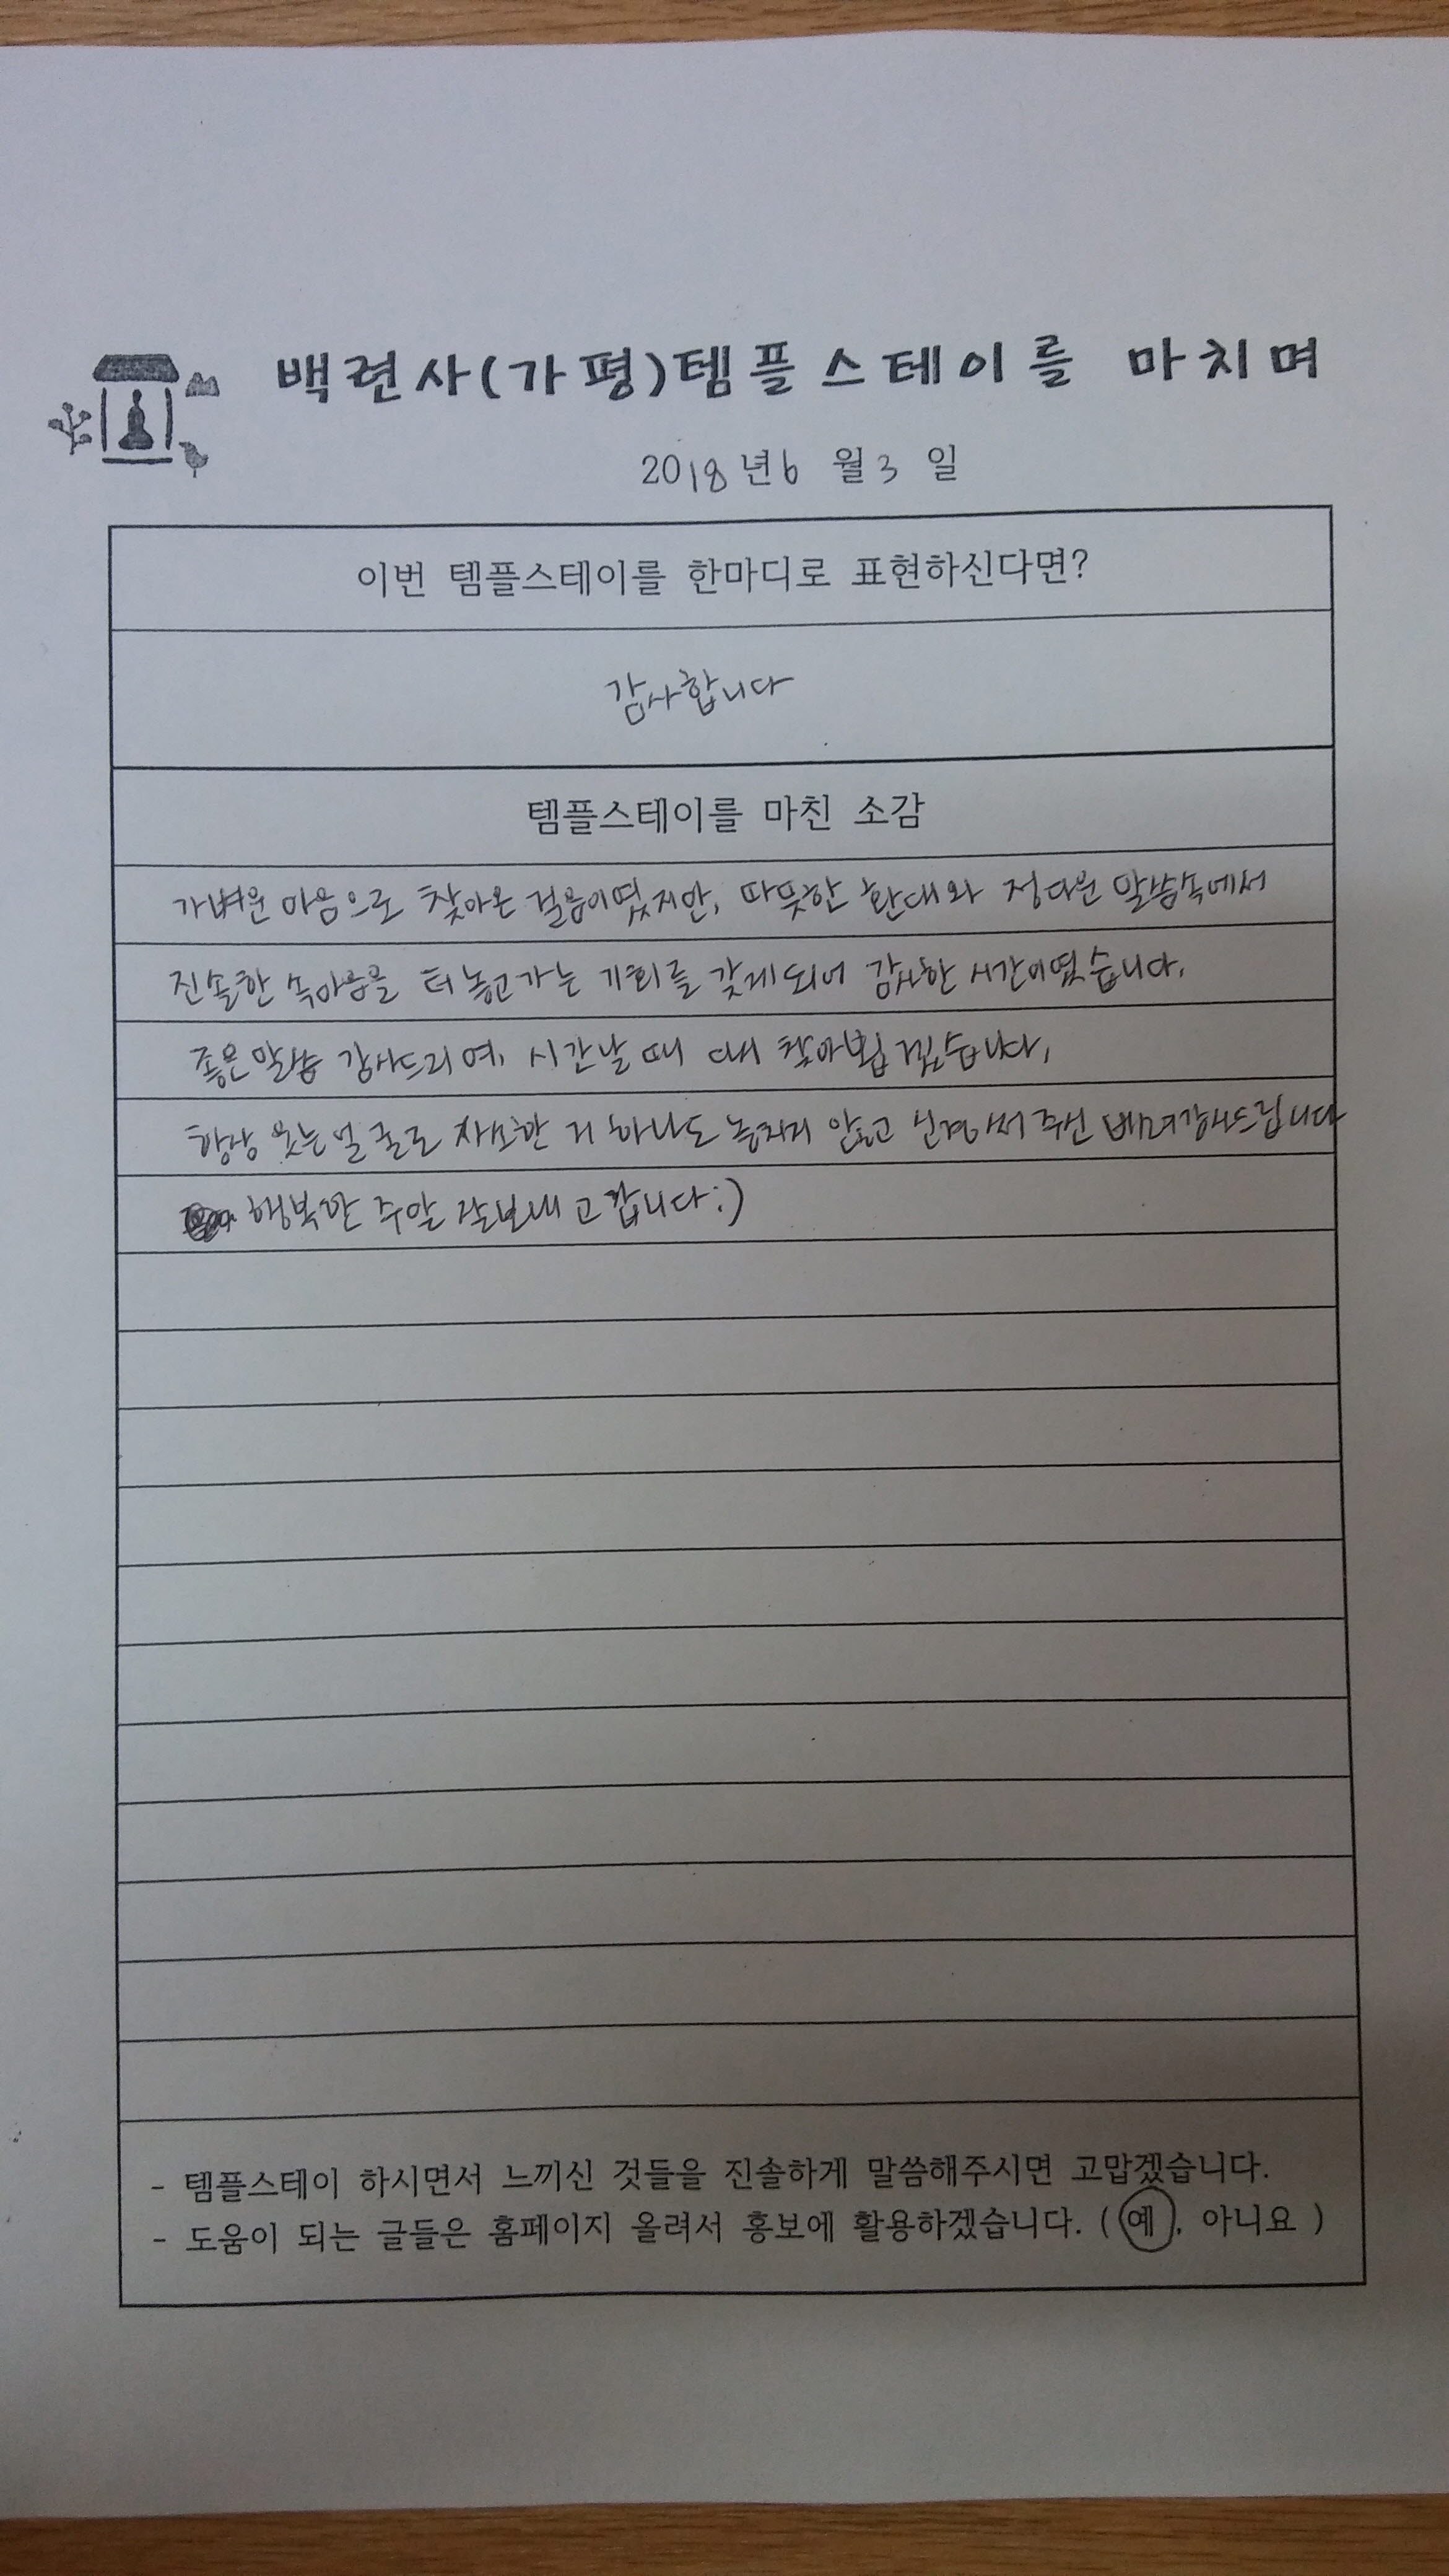 백련사(가평)템플스테이를 마치며
2018년 6 월 3 일
이번 템플스테이를 한마디로 표현하신다면?
감사합니다
템플스테이를 마친 소감
가벼운 마음으로 찾아온 걸음이였지만, 따뜻한 환대와 정다운 말씀속에서
진솔한 속마음을 터 놓고 가는 기회를 갖게되어 감사한 시간이였습니다.
좋은 말씀 감사드리며, 시간날 때 다시 찾아뵙겠습니다.
항상 웃는 얼굴로 사소한 거 하나도 놓치지 않고 신경써 주신 배려감사드립니다
행복한 주말 잘보내고 갑니다:)
- 템플스테이 하시면서 느끼신 것들을 진솔하게 말씀해주시면 고맙겠습니다.
- 도움이 되는 글들은 홈페이지 올려서 홍보에 활용하겠습니다. ( 예, 아니요 )